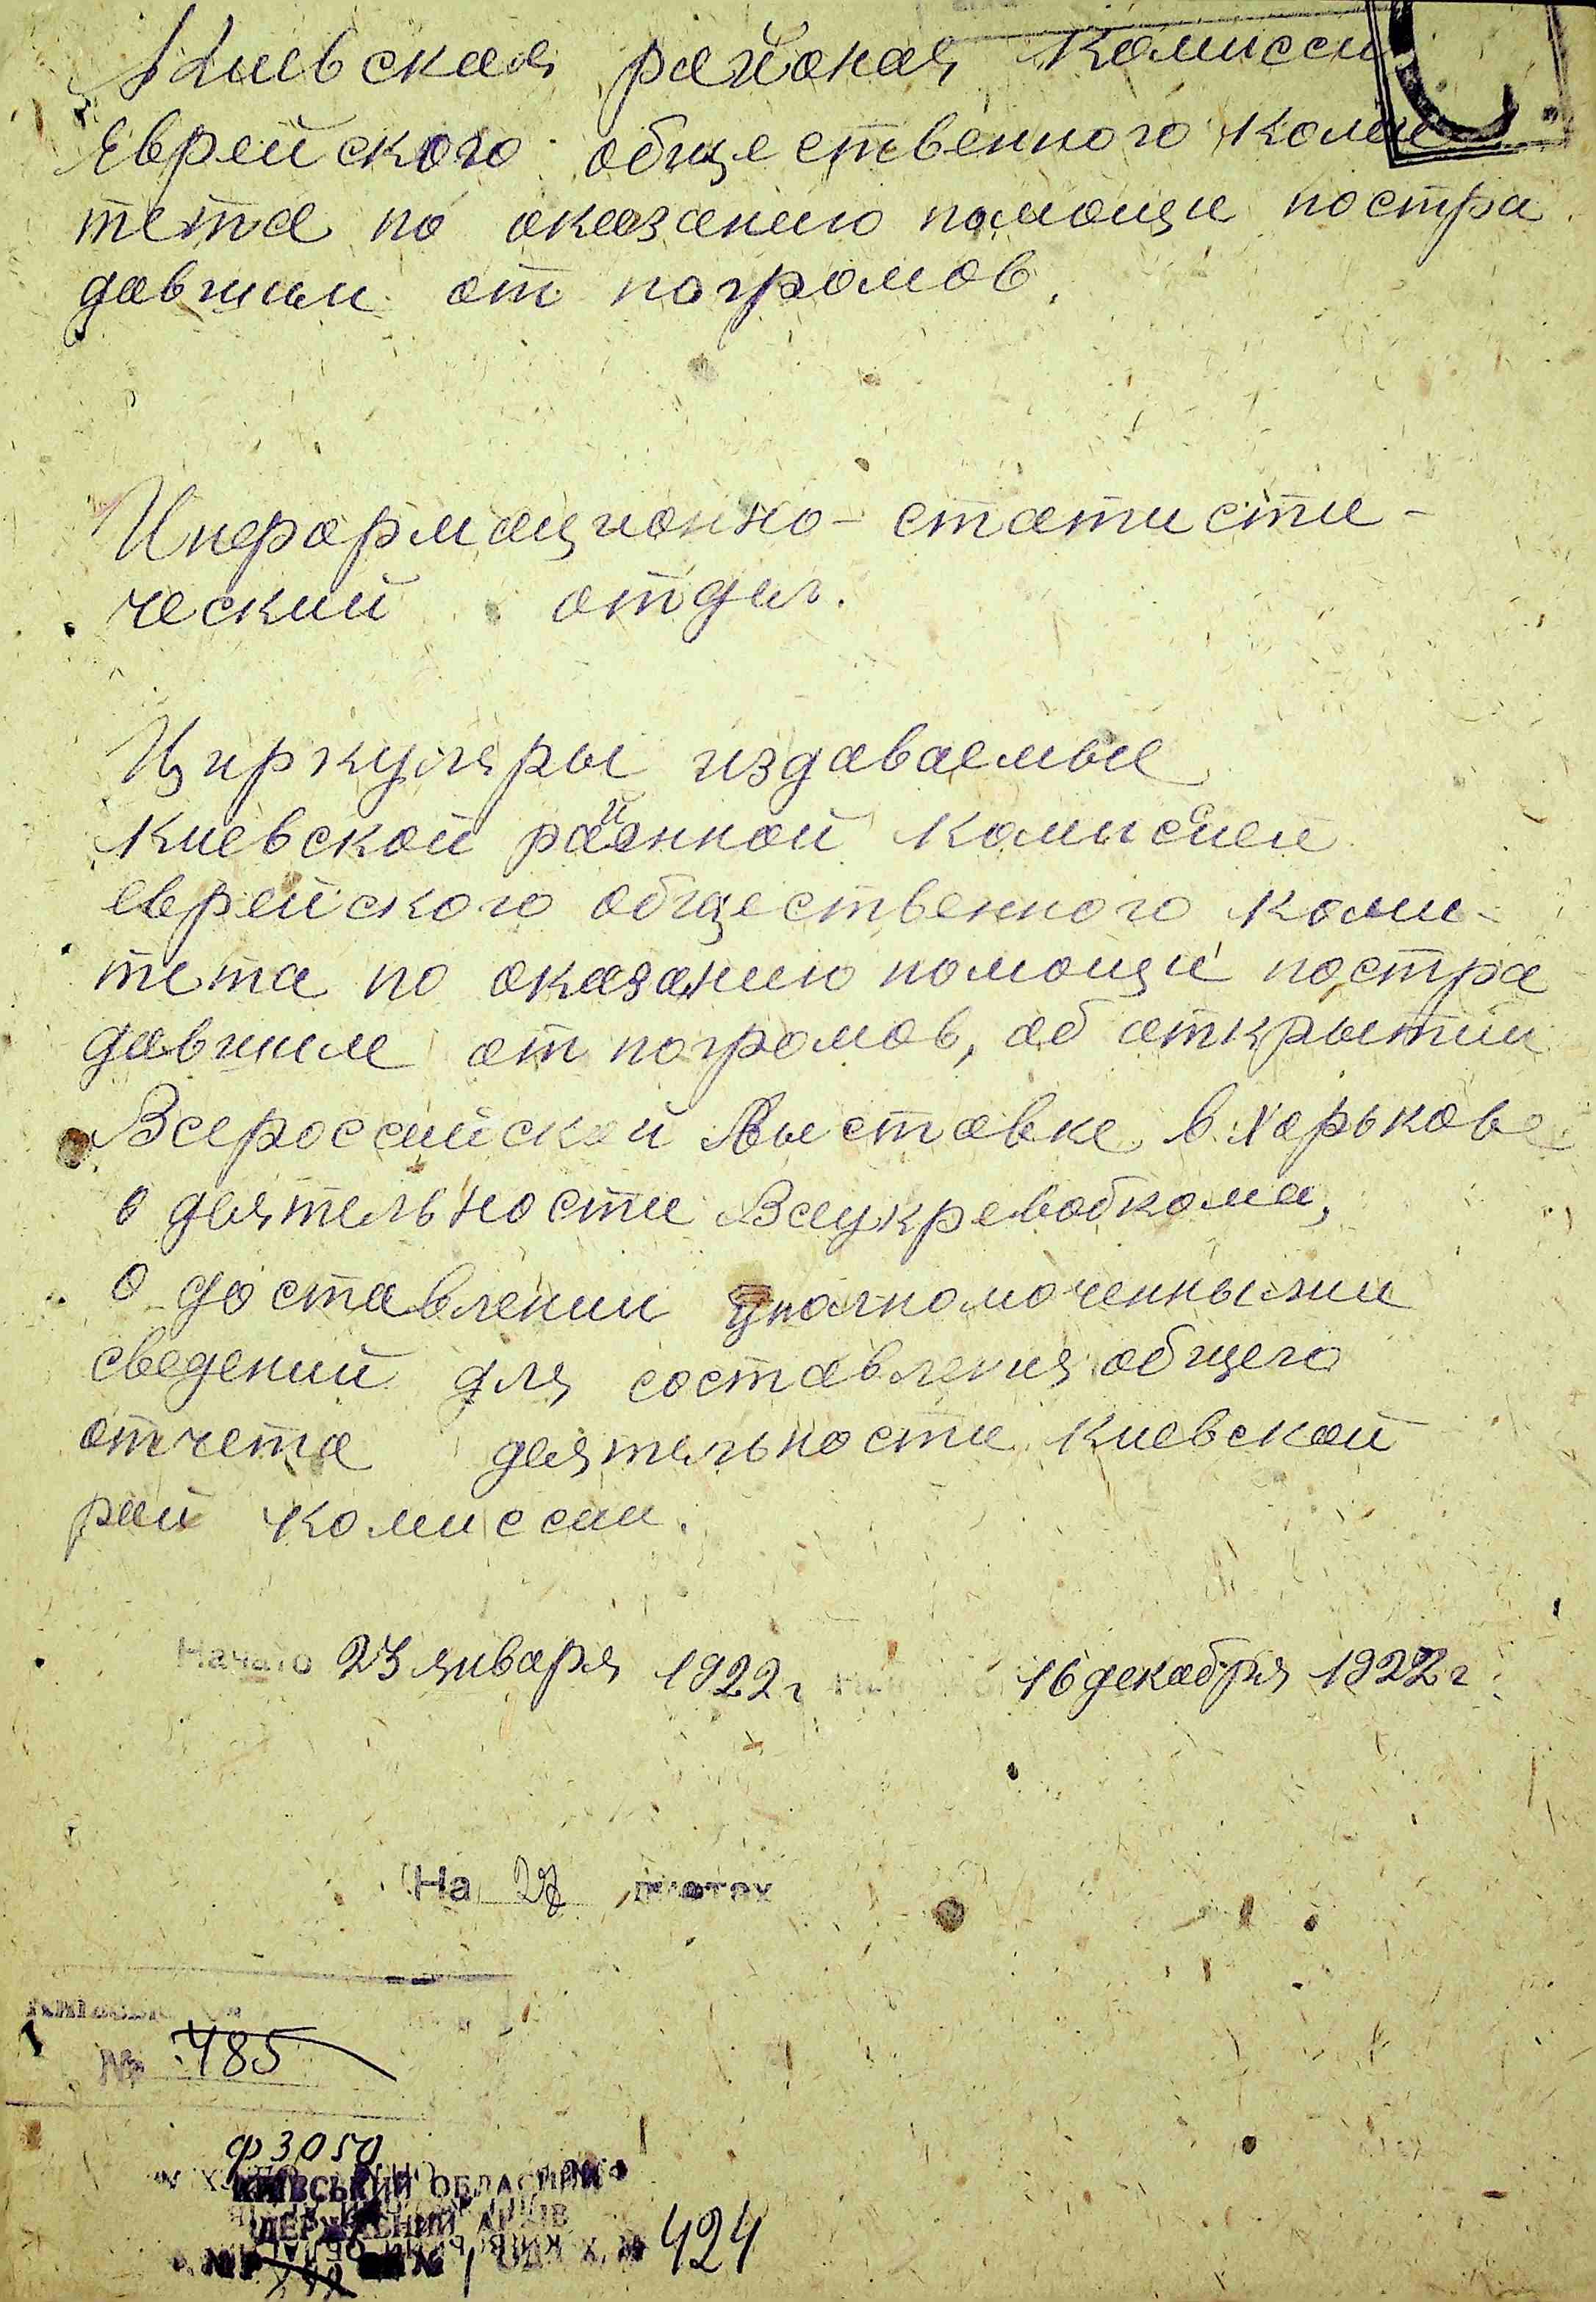 Киевская районая комисси
Еврейского общественного коми
тета по оказанию помощи постра
давшим от погромов.
Информационно-статисти-
ческий отдел.
Циркуляры издаваемые
киевской районной комиссией
еврейского общественного коми-
тета по оказанию помощи постра
давшим от погромов, об открытии
Всероссийской Выставке в Харькове
о деятельности
о доставлении уполномоченными
сведений для составления общего
отчета деятельности киевской
рай комиссии.
Начато 23 января 1922 г 16 декабря 1922 г.
На листах
№ 485
ф 3050
КИЇВСЬКИЙ ОБЛАСНИЙ
ДЕРЖАВНИЙ АРХІВ
424